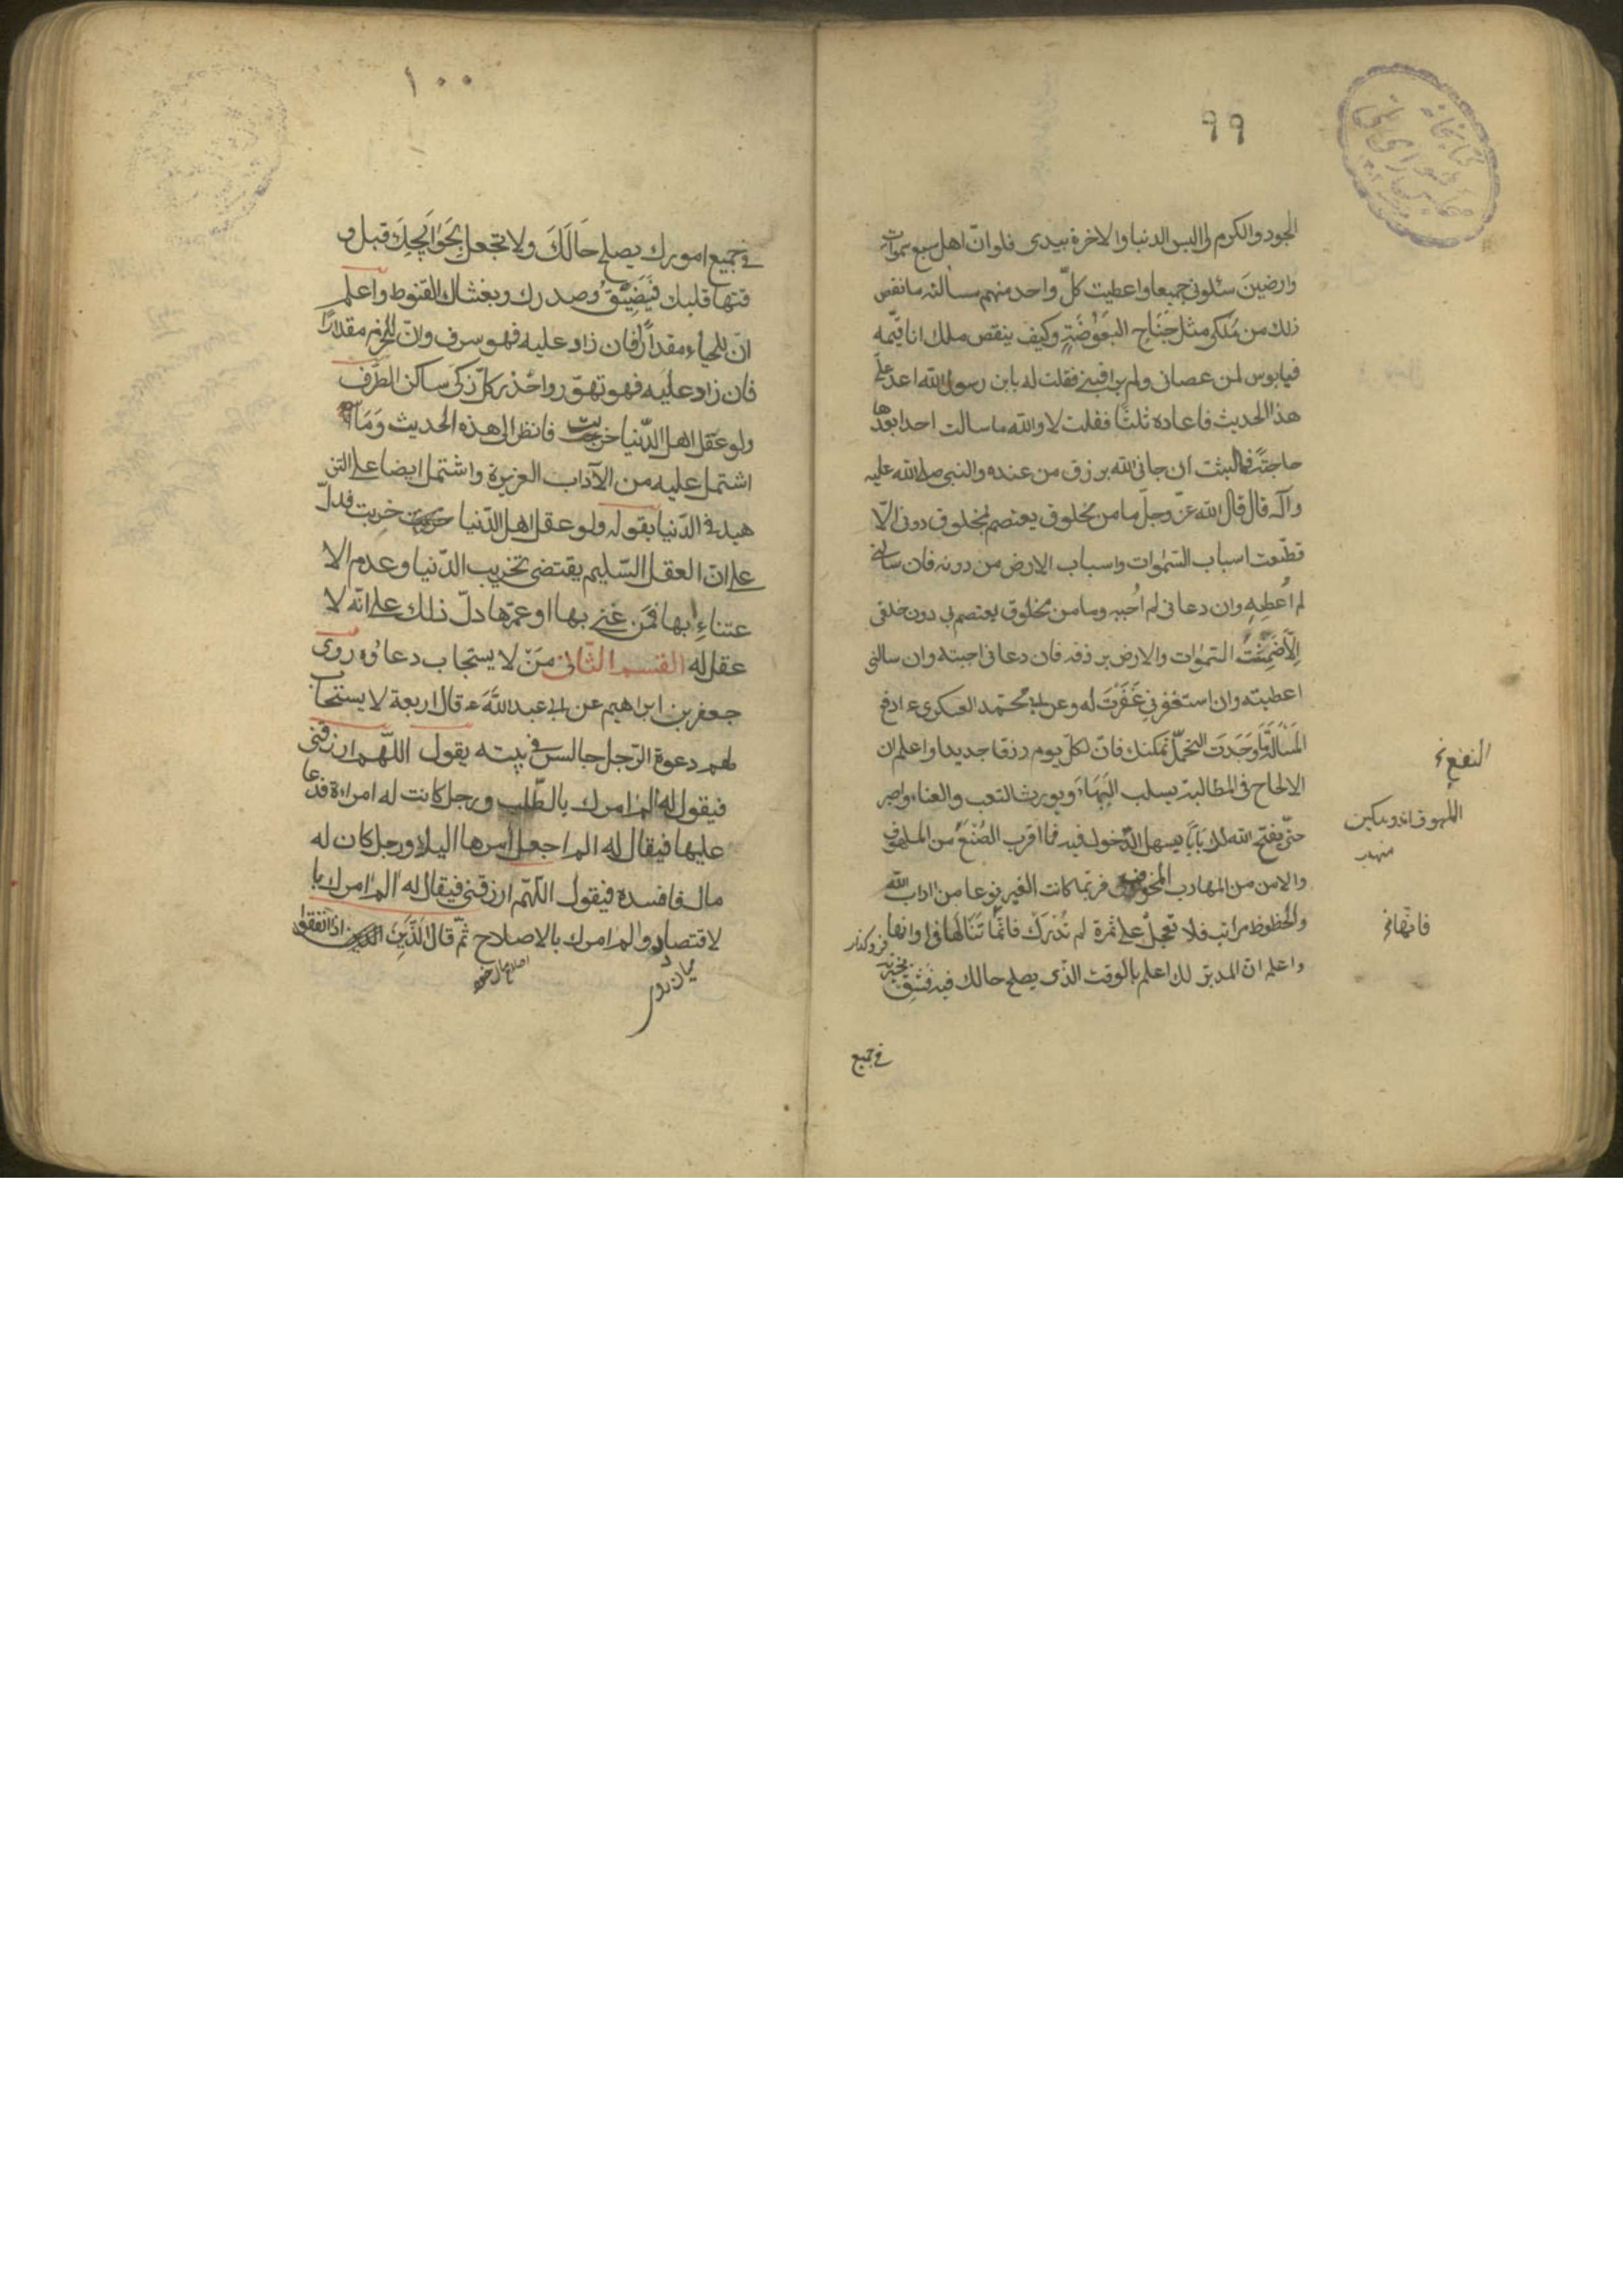 ٩٩
الجود والكرم لی الیس الدنیا والاخرة بیدی فلو انّ اهل سبع سموات
وارضینَ سئلونی جمیعا واعطیت کلّ واحد منهم مسالته ما نقص
ذلك من مُلکی مثل جَنَاحِ البَعَوْضَةِ وکیف ینقص ملك انا قیّمه
فیا بوس لمن عصانی ولم یراقبنی فقلت له یا بن رسول الله اعد علیّ
هذا الحدیث فاعاده ثلثًا فقلت لا والله ما سالت احدا بعدها
حاجتً فما لبثت ان جانی الله برزق من عنده والنبی صلی الله علیه
وآله قال قال الله عزّ وجلّ ما من مخلوق یعتصم بمخلوق دونی الّا
قطّعت اسباب السّموات واسباب الارض من دونه فان سالنی
لم اُعطِهِ وان دعانی لم اُجبه وما من مخلوق یعتصم بی دون خلقی
اِلّا ضَمِنْتُ السّموات والارض برزقه فان دعانی اجبته وان سالنی
اعطیته وان استغفرنی غَفَرْتَ له وعن ابی محمّد العسکری ع ادفع
المَسْاَلَةَ مَا وَجَدَتَ التحمّلّ یمکنك فانّ لکلّ یوم رزقا جدیدا واعلم ان
الالحاح فی المطالبة یسلب البَهَاءَ ویورث التعب والعناء واصبر
حتّی یفتح الله لك بَابًا یسهل الدّخول فیه فما اقرب الصُنْعَ من الملهوف
والامن من الهارب المخوف فربّما کانت الغیر نوعا من اداب الله
والحظوظ مراتب فلا تعجلْ علی ثمرة لم تُدْرَكْ فانّما تَنَالُهَا فی اوانها
واعلم انّ المدبّر لك اعلم بالوقت الذّی یصلح حالك فیه فَثِقْ
فی جمیع
الملهوف اندوهکین
فانّها
١٠٠
فی جمیع امورك یصلح حَالَكَ ولا تجعل بِحَوَایِجِكَ قبل و
قتها قلبك فَیَضِیْقُ وصدرك ویغشاك القنوط واعلم
انّ للحیاء مقدارًا فان زاد علیه فهو سرف وانّ للحزم مقدارًا
فان زاد علیه فهو تهوّر واحذر کلّ زکیّ ساکن الطّرف
ولو عقل اهل الدّنیا خربت فانظر الی هذه الحدیث وَمَا
اشتمل علیه من الآداب العزیزة واشتمل ایضا علی التز
هید فی الدّنیا بقوله ولو عقل اهل الدّنیا خربت فدلّ
علی انّ العقل السّلیم یقتضی تخریب الدّنیا وعدم الا
عتناءِ بها فمَن عَنی بها او عمّرها دلّ ذلك علی انّه لا
عقل له القسم الثّانی مَنْ لا یستجاب دعاؤه روی
جعفر بن ابراهیم عن ابی عبد اللهَ ع قال اربعة لا یستجاب
لهم دعوة الرّجل جالس فی بیته یقول اللّهم ارزقنی
فیقول له الم امرك بالطّلب ورجل کانت له امراءة فدعا
علیها فیقال له الم اجعل امرها الیك ورجل کان له
مال فافسده فیقول اللّهمّ ارزقنی فیقال له الم امرك با
لاقتصاد والم امرك بالاصلاح ثمّ قال الَّذینَ اذا انفقوا